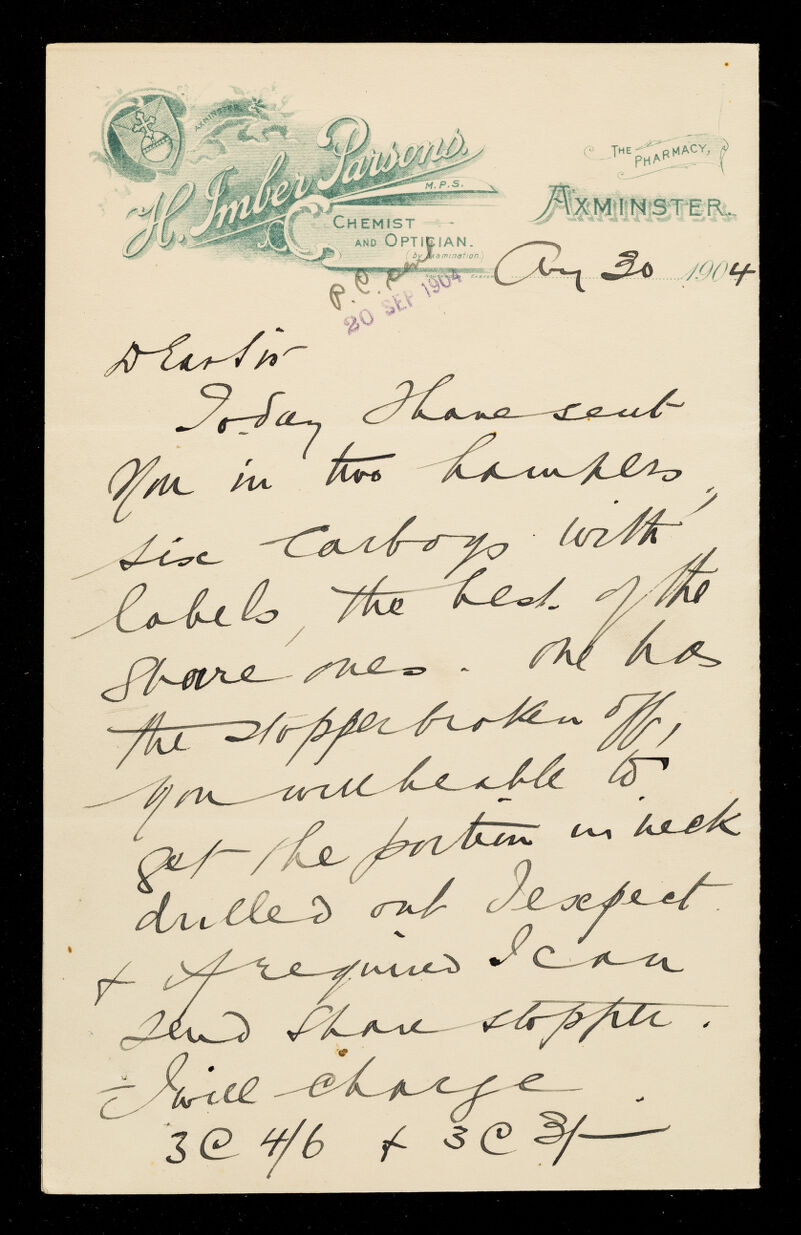 AXMINSTER.
H. Imber Parsons.
M.P.S.
CHEMIST
AND OPTICIAN.
(by Examination.)
THE PHARMACY,
AXMINSTER.
Aug 30 1904
P.C. sent
20 SEP 1904
Dear Sir
Today I have sent
you in two hampers,
six Carboys with
labels, the best of the
Share ones. One has
the stopper broken off,
you will be able to
get the portion in neck
drilled out I expect
& if required I can
send Share stopper.
I will charge
3 @ 4/6 & 3 @ 3/-